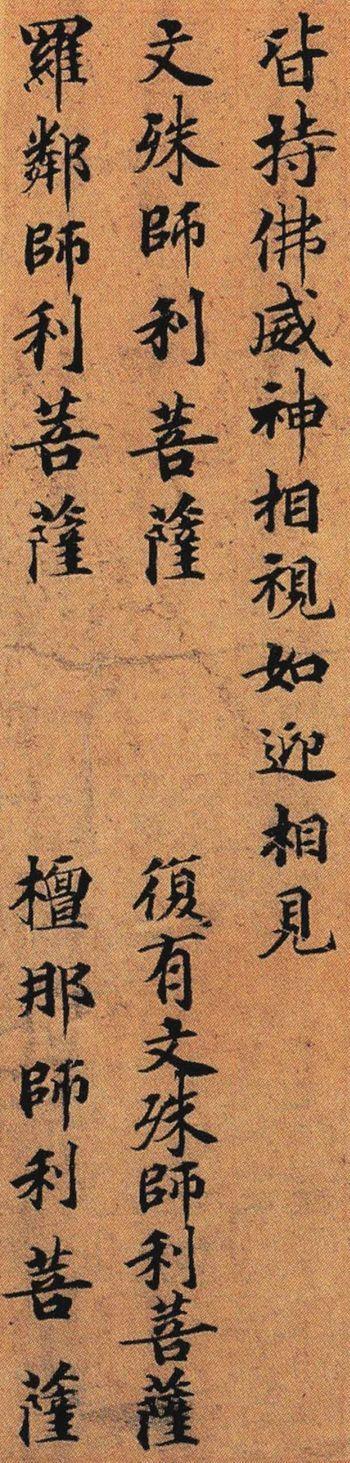 皆持佛威神相視如迎相見
文殊師利菩薩 復有文殊師利菩薩
羅鄰師利菩薩 檀那師利菩薩